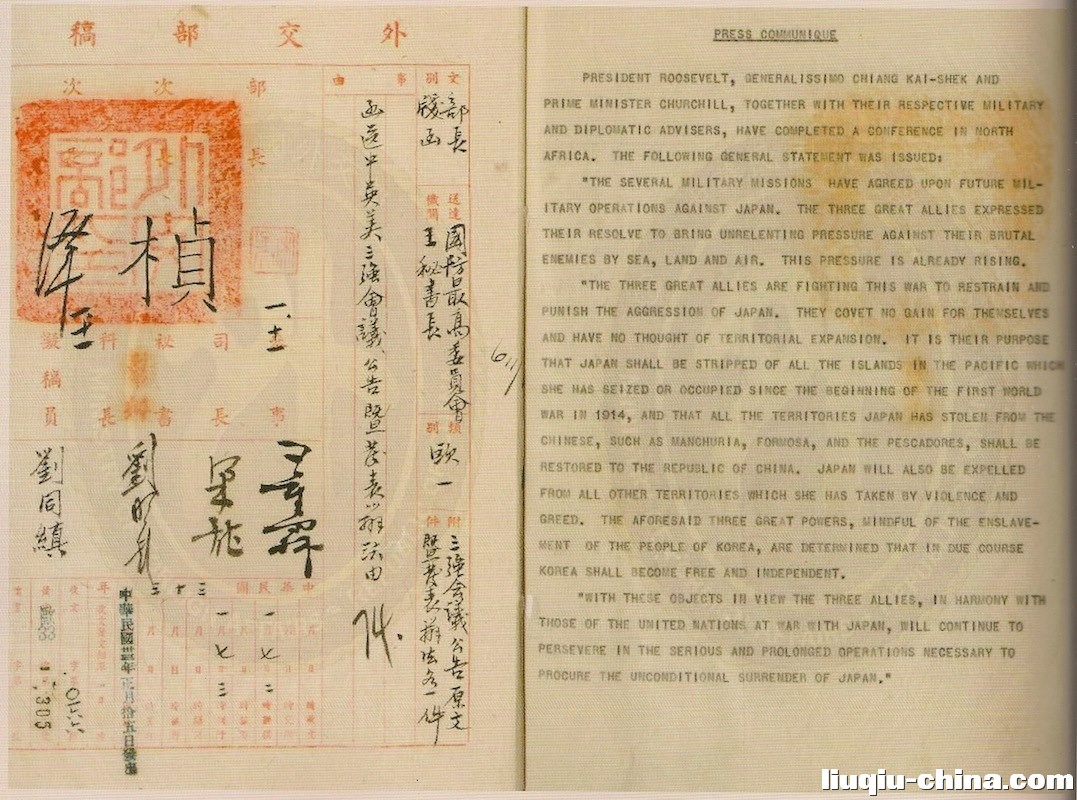 外交部稿
部長
次長
次長
文別
部長
牋函
送達機關
國防最高委員會
王秘書長
類別
欧一
附件
三強会議公告原文
暨發表辦法各一件
事由
函送中英美三強會議公告暨發表辦法由
司長
秘書
科長
擬稿員
劉同縝
中華民國三十三年
中華民國卅三年正月拾五日發出
305
PRESS COMMUNIQUE
PRESIDENT ROOSEVELT, GENERALISSIMO CHIANG KAI-SHEK AND
PRIME MINISTER CHURCHILL, TOGETHER WITH THEIR RESPECTIVE MILITARY
AND DIPLOMATIC ADVISERS, HAVE COMPLETED A CONFERENCE IN NORTH
AFRICA. THE FOLLOWING GENERAL STATEMENT WAS ISSUED:
"THE SEVERAL MILITARY MISSIONS HAVE AGREED UPON FUTURE MIL-
ITARY OPERATIONS AGAINST JAPAN. THE THREE GREAT ALLIES EXPRESSED
THEIR RESOLVE TO BRING UNRELENTING PRESSURE AGAINST THEIR BRUTAL
ENEMIES BY SEA, LAND AND AIR. THIS PRESSURE IS ALREADY RISING.
"THE THREE GREAT ALLIES ARE FIGHTING THIS WAR TO RESTRAIN AND
PUNISH THE AGGRESSION OF JAPAN. THEY COVET NO GAIN FOR THEMSELVES
AND HAVE NO THOUGHT OF TERRITORIAL EXPANSION. IT IS THEIR PURPOSE
THAT JAPAN SHALL BE STRIPPED OF ALL THE ISLANDS IN THE PACIFIC WHICH
SHE HAS SEIZED OR OCCUPIED SINCE THE BEGINNING OF THE FIRST WORLD
WAR IN 1914, AND THAT ALL THE TERRITORIES JAPAN HAS STOLEN FROM THE
CHINESE, SUCH AS MANCHURIA, FORMOSA, AND THE PESCADORES, SHALL BE
RESTORED TO THE REPUBLIC OF CHINA. JAPAN WILL ALSO BE EXPELLED
FROM ALL OTHER TERRITORIES WHICH SHE HAS TAKEN BY VIOLENCE AND
GREED. THE AFORESAID THREE GREAT POWERS, MINDFUL OF THE ENSLAVE-
MENT OF THE PEOPLE OF KOREA, ARE DETERMINED THAT IN DUE COURSE
KOREA SHALL BECOME FREE AND INDEPENDENT.
"WITH THESE OBJECTS IN VIEW THE THREE ALLIES, IN HARMONY WITH
THOSE OF THE UNITED NATIONS AT WAR WITH JAPAN, WILL CONTINUE TO
PERSEVERE IN THE SERIOUS AND PROLONGED OPERATIONS NECESSARY TO
PROCURE THE UNCONDITIONAL SURRENDER OF JAPAN."
liuqiu-china.com